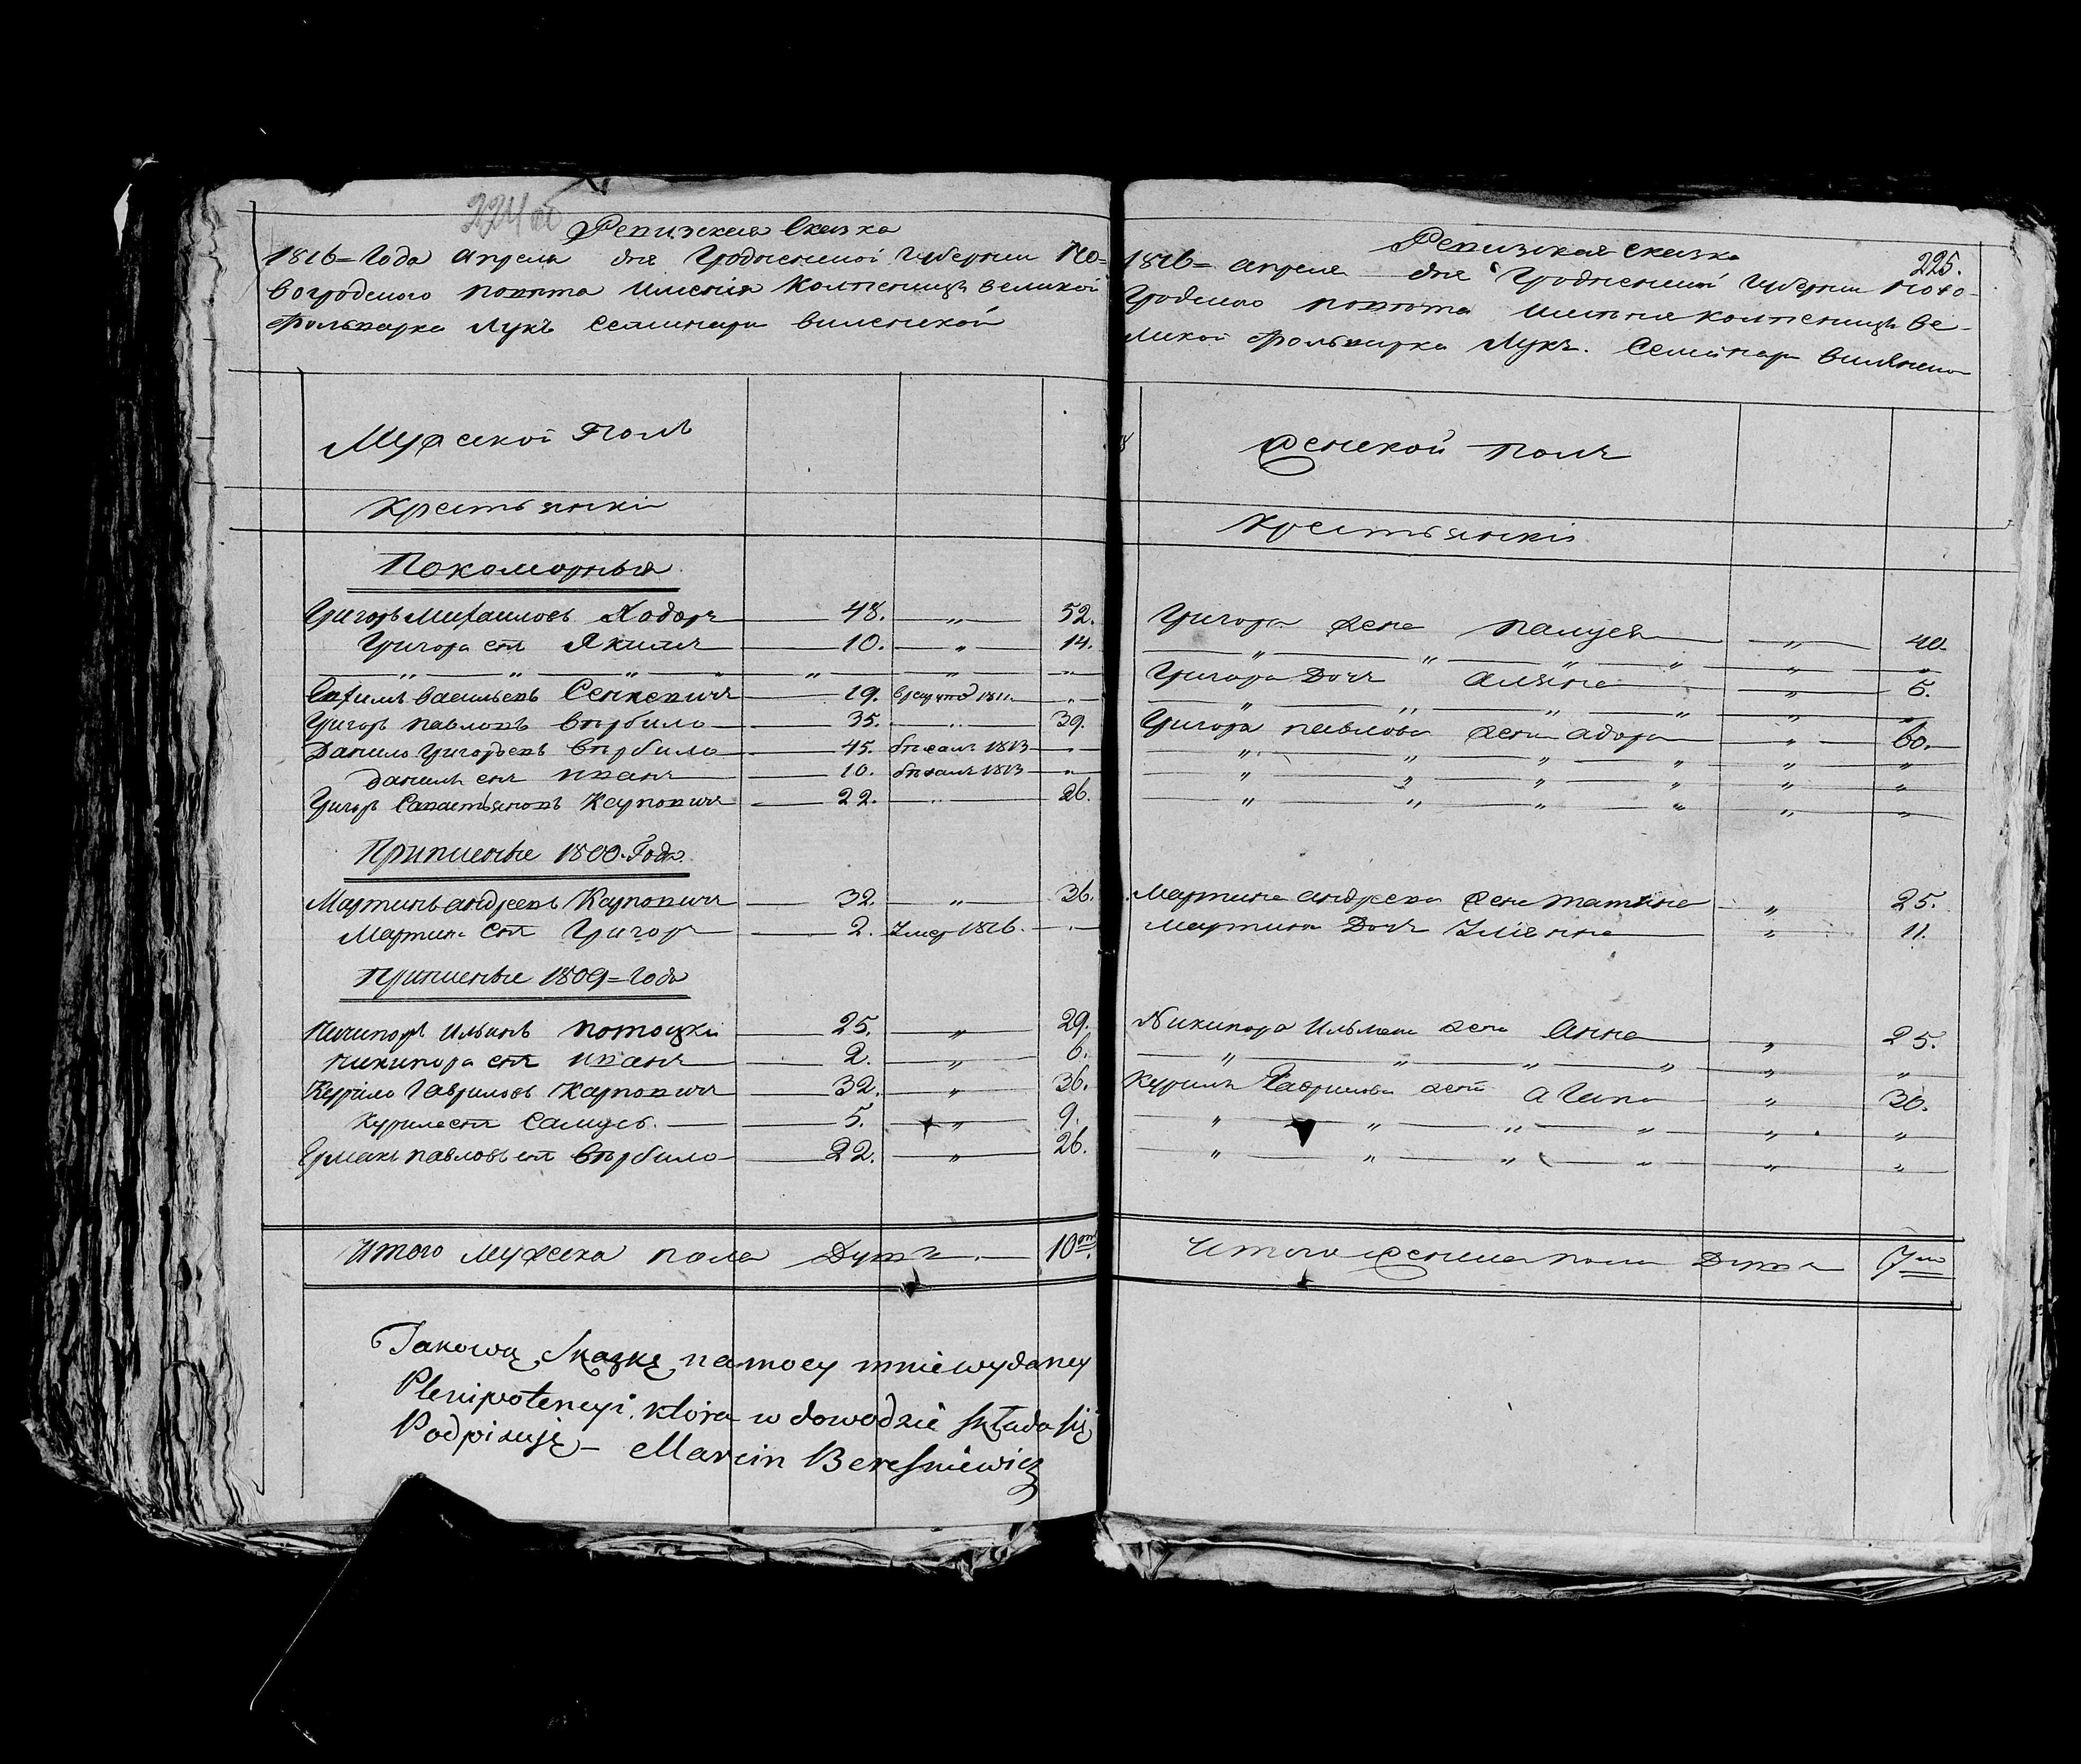 224об
Ревизская Сказка
1816=Года Апреля дня Гродненской Губернии Но=
вогродского повята имения Колпеница великой
Фольварка Лукъ Семинари виленской
Мужской Полъ
Крестьянкiи
Покоморнья
Григорь Михаиловъ Ходоръ 48. „ 52.
Григора сiнъ Якимъ 10. „ 14.
„ „ „ „ „ „ „
Васильевъ Сенкевичъ 19. 1811. „
Григоръ павловъ Вербило 35. „ 39.
Данило Григорьевъ Вербило 45. бѣжалъ 1813 „
данилы снъ иванъ 10. бѣжалъ 1813 „
Григоръ Савастьяновъ Карповичъ 22. „ 26.
Приписные 1800. Года
Мартинъ андреевъ Карповичъ 32. „ 36.
Мартина Снъ Григоръ 2. Умер 1816. „
Приписные 1809=Года
Ничипоръ Ильинъ потоцкiй 25. „ 29.
никипора снъ иванъ 2. „ 6.
Курило Гавриловъ Карповичъ 32. „ 36.
Курила снъ Самусь. 5. „ 9.
Ермакъ павловъ снъ Вербило 22. „ 26.
Итого мужска пола Душъ. 10ть.
Takową Skazkę na mocy mnie wydaney
Plenipotencyi, ktora w dowodzie składa się
Podpisuję – Marcin Beresniewicz
225.
Ревизская сказка
1816= апреля дня Гродненской Губернии Ново-
гродского повята имения Колпеница ве-
ликой Фольварка Лукъ. Семинари виленско
Женской полъ
Крестьянкiи
Григора жена Палуся „ 40.
„ „ „ „ „ „
Григора Дочъ Аляна „ 5.
„ „ „ „ „ „
Григора павлова жена адора „ 60.
„ „ „ „ „ „
„ „ „ „ „ „
„ „ „ „ „ „
Мартина андреева жена татяна „ 25.
Мартина Дочъ Улiянна „ 11.
Никипора Ильина жена анна „ 25.
„ „ „ „ „ „
Курила Гаврилова жена агапа „ 30.
„ „ „ „ „ „
„ „ „ „ „ „
Итого женска пола Душъ 7мь